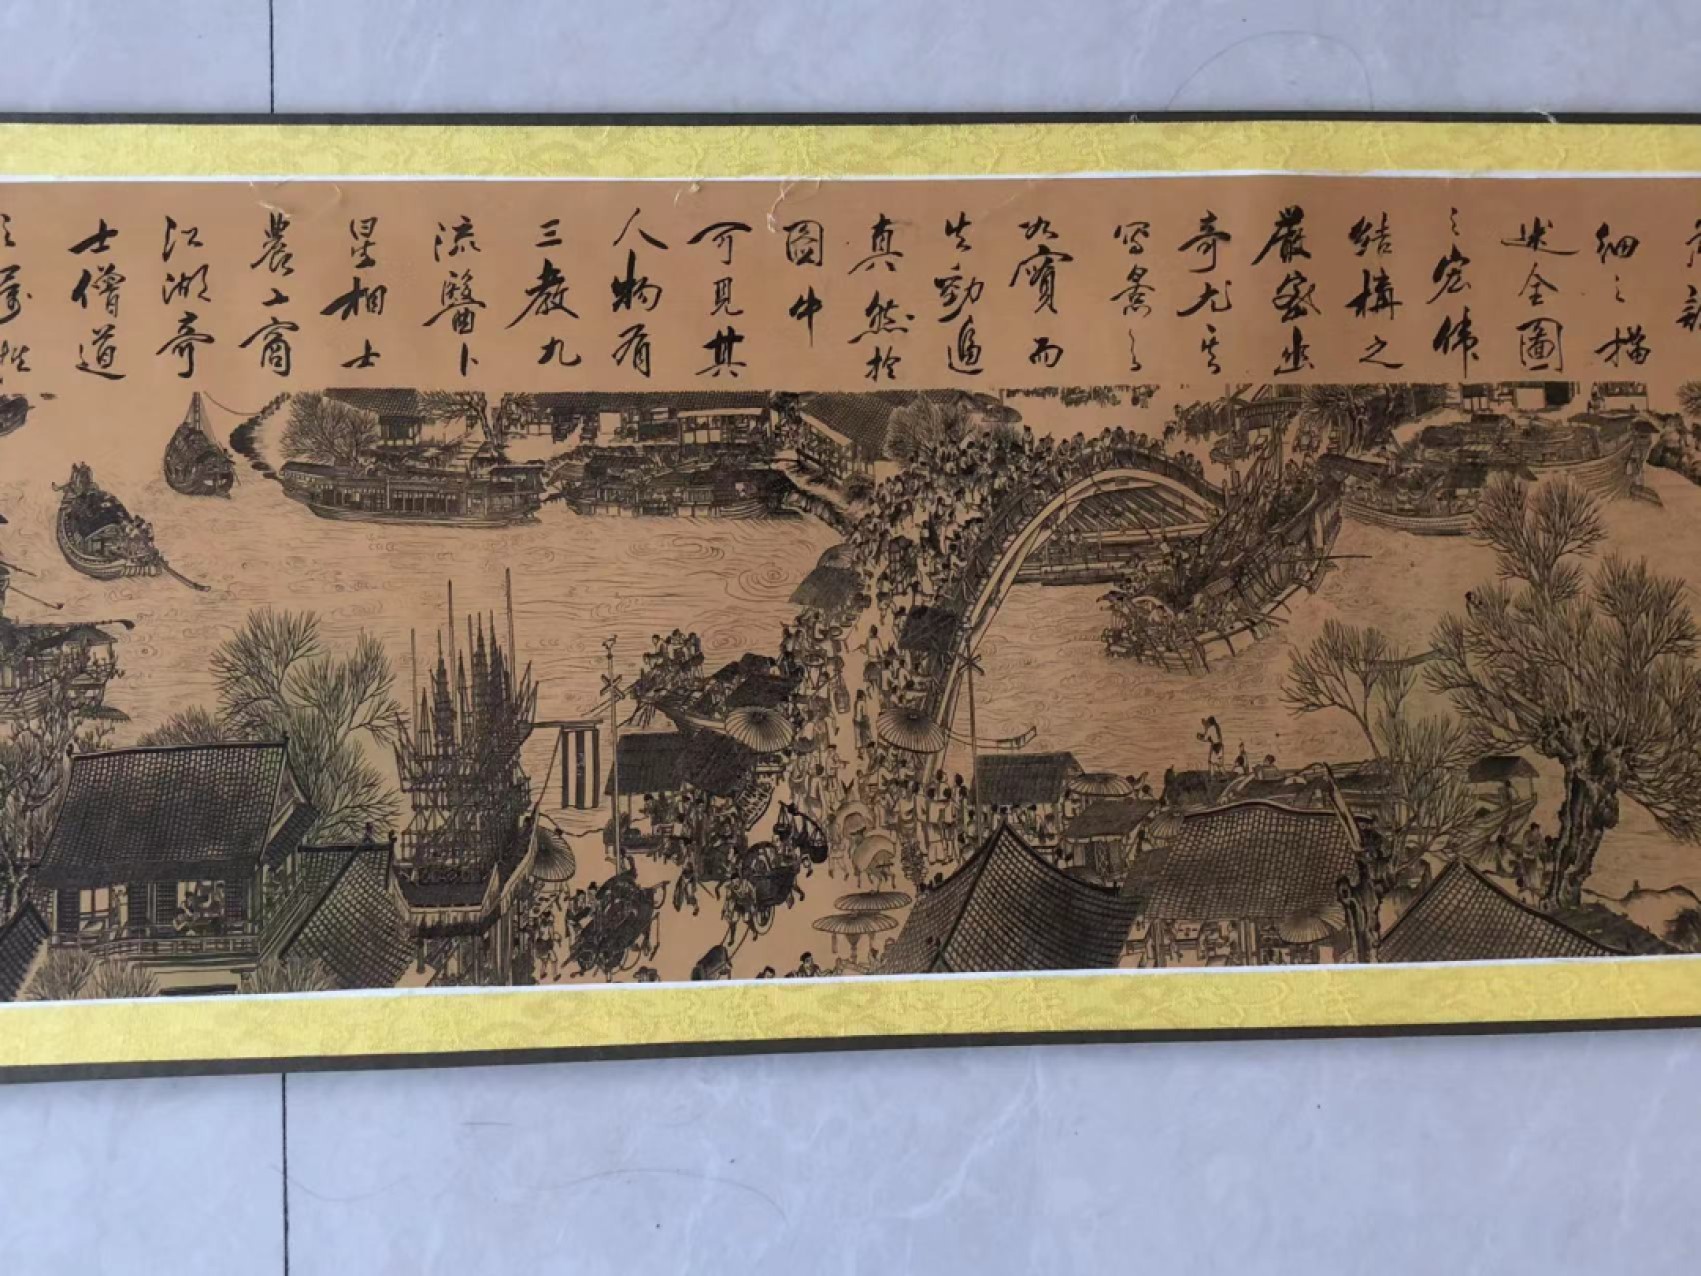 細之描
述全圖
之宏伟
結構之
嚴密出
奇尤其
寫景之
如實而
生動逼
真然於
圖中
可見其
人物有
三教九
流醫卜
星相士
農工商
江湖奇
士僧道